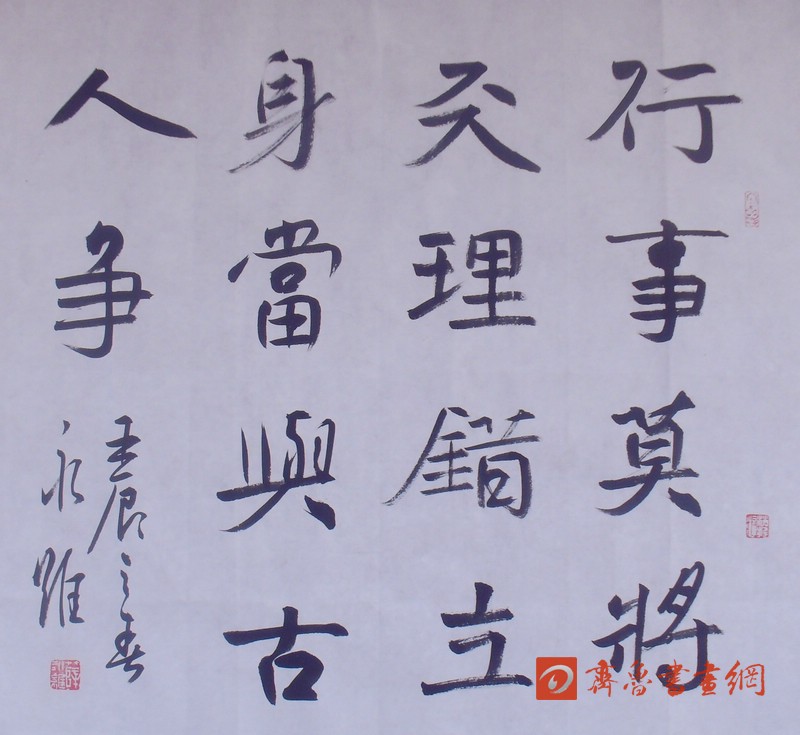 行事莫將
天理錯立
身當與古
人争
壬辰之春
永
齊魯書畫網